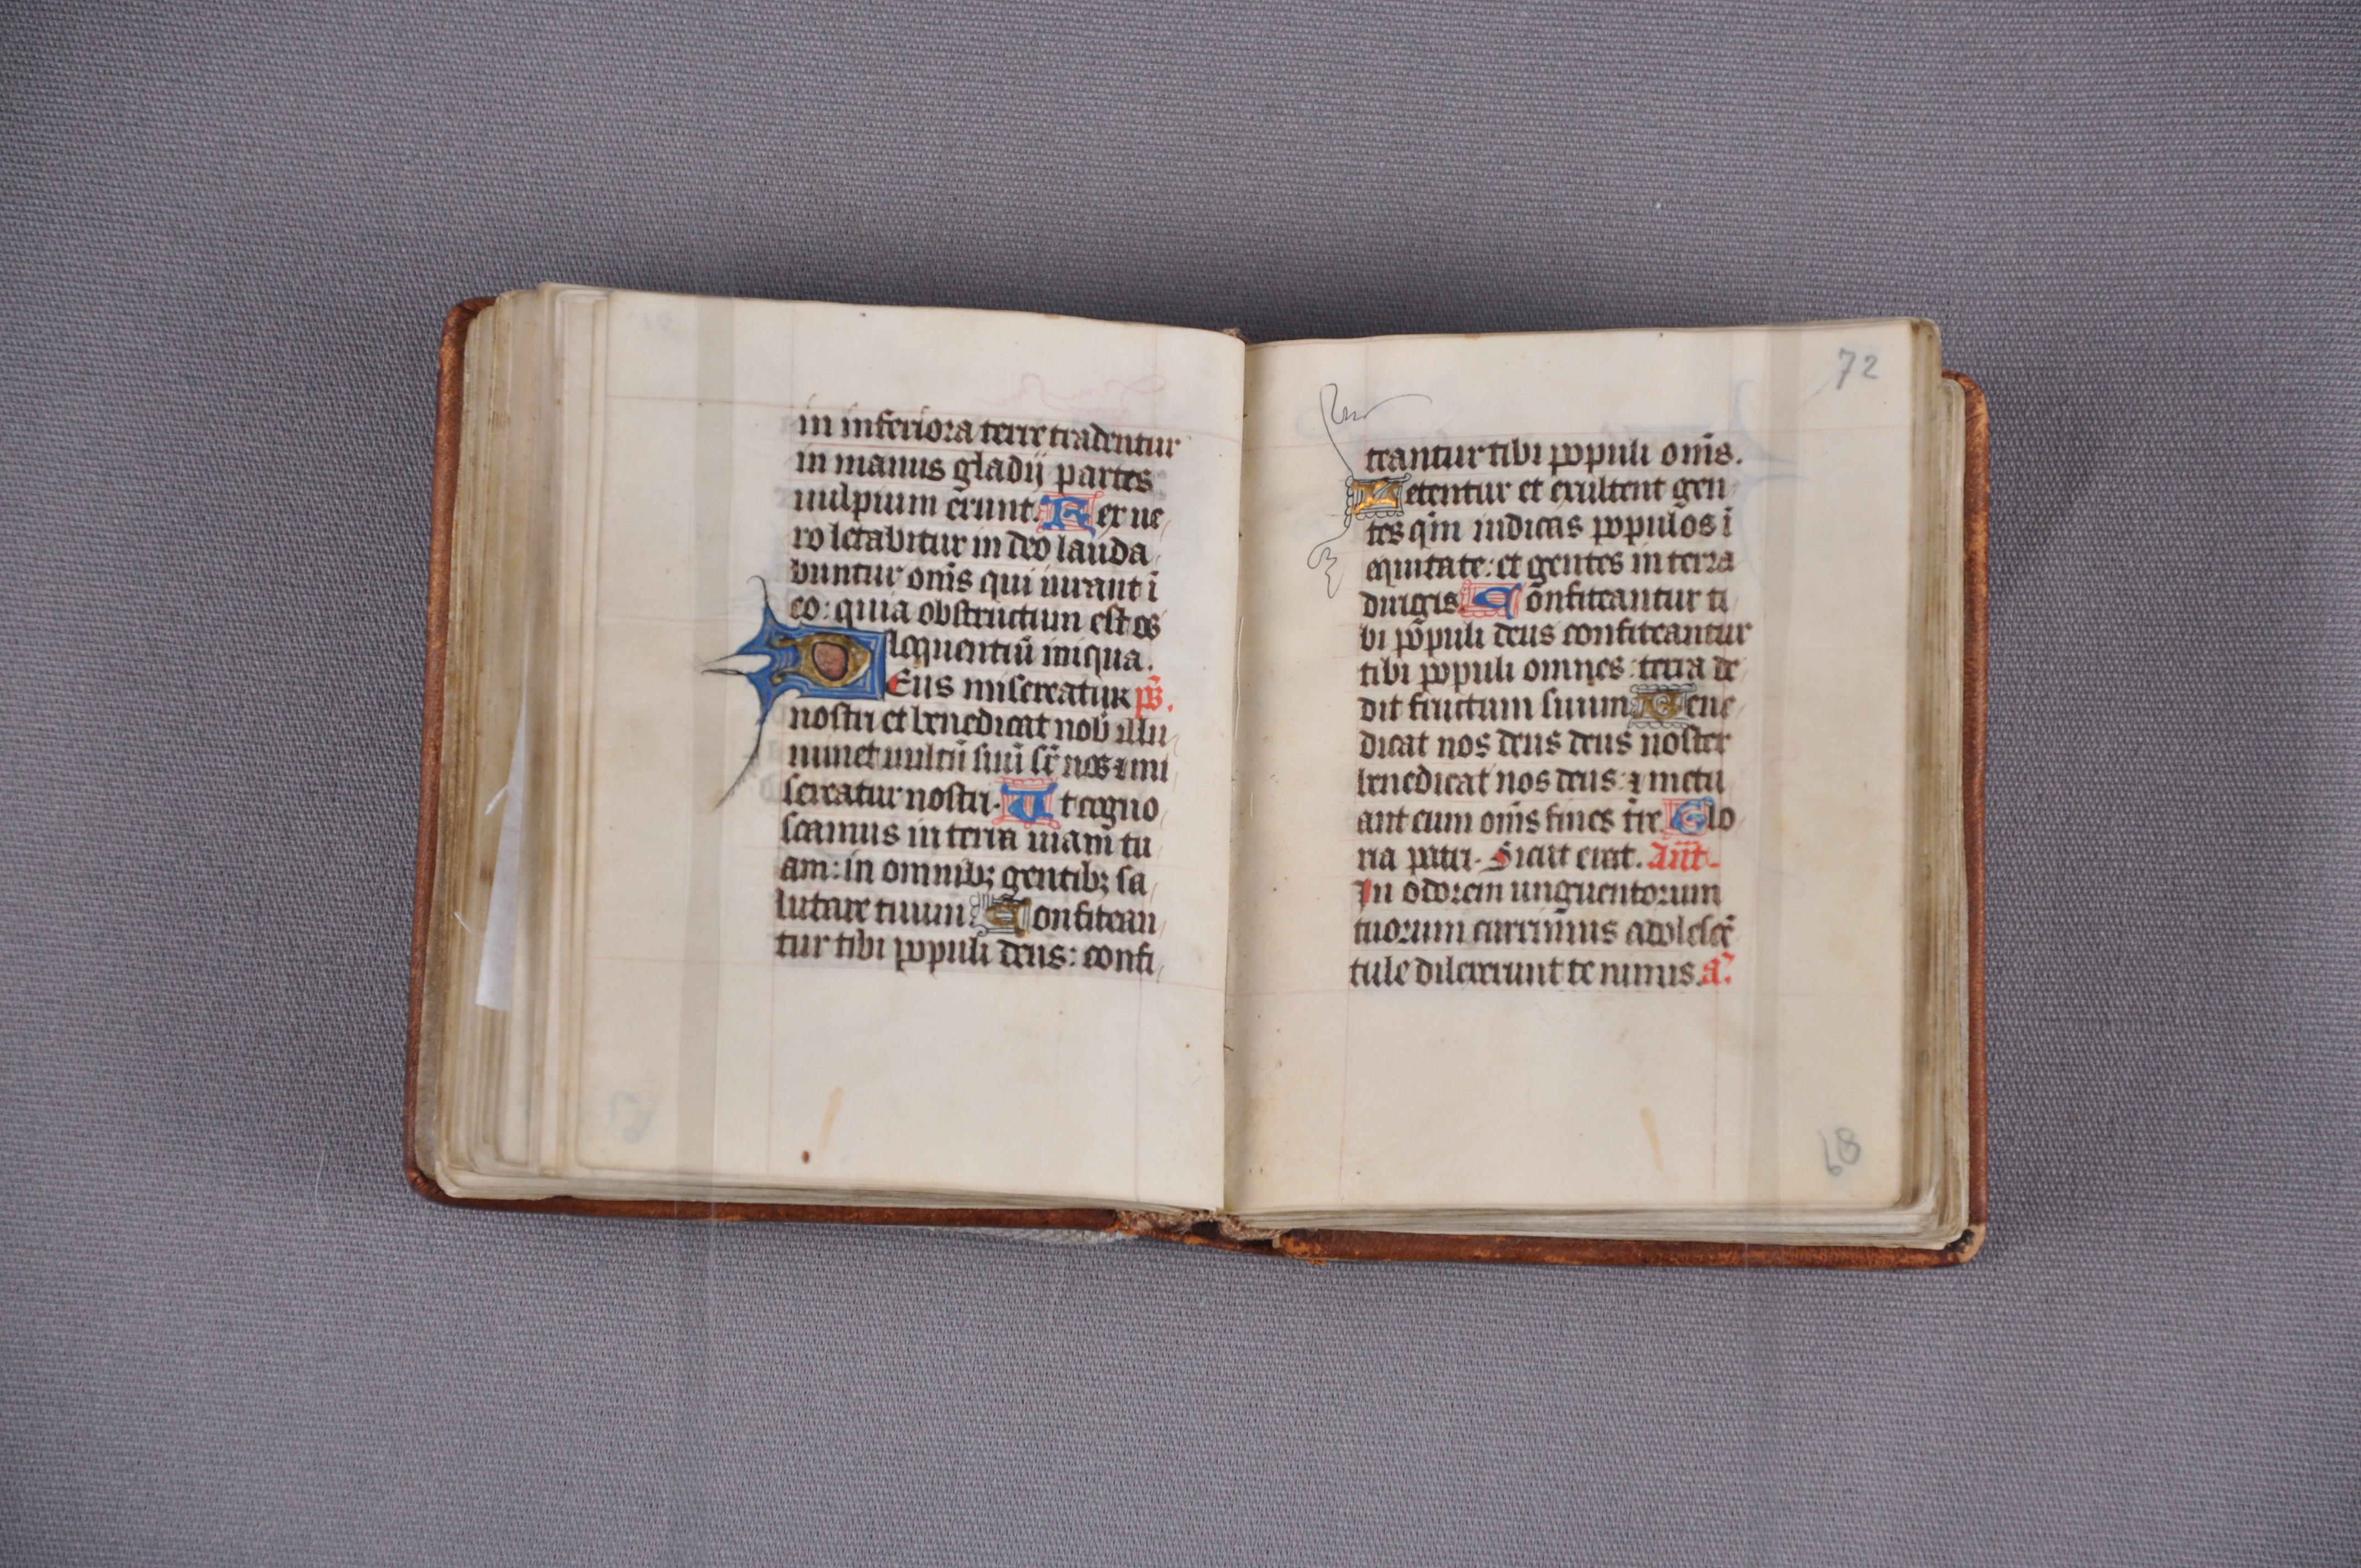 in inferiora terre tradentur
in manus gladij partes
uulpium erunt. Rex ue
ro letabitur in deo lauda
buntur om̄s qui iurant ī
eo: quia obstructum est os
loquentiū iniqua.
Deus misereatur ps̄.
nostri et benedicat nob̄ illu
minet uultū suū sr̄ nos ⁊ mi
sereatur nostri. Ut cogno
scamus in terra uiam tu
am: in omnibꝫ gentibꝫ sa
lutare tuum Confitean
tur tibi populi deus: confi
72
teantur tibi populi om̄s.
Letentur et exultent gen
tes qm̄ iudicas populos ī
equitate: et gentes in terra
dirigis Confiteantur ti
bi populi deus confiteantur
tibi populi omnes: terra de
dit fructum suum Bene
dicat nos deus deus noster
benedicat nos deus: ⁊ metu
ant eum om̄s fines tr̄e. Glo
ria patri. Sicut erat. Añt.
In odorem unguentorum
tuorum currimus adolescē
tule dilexerunt te nimis. a͛